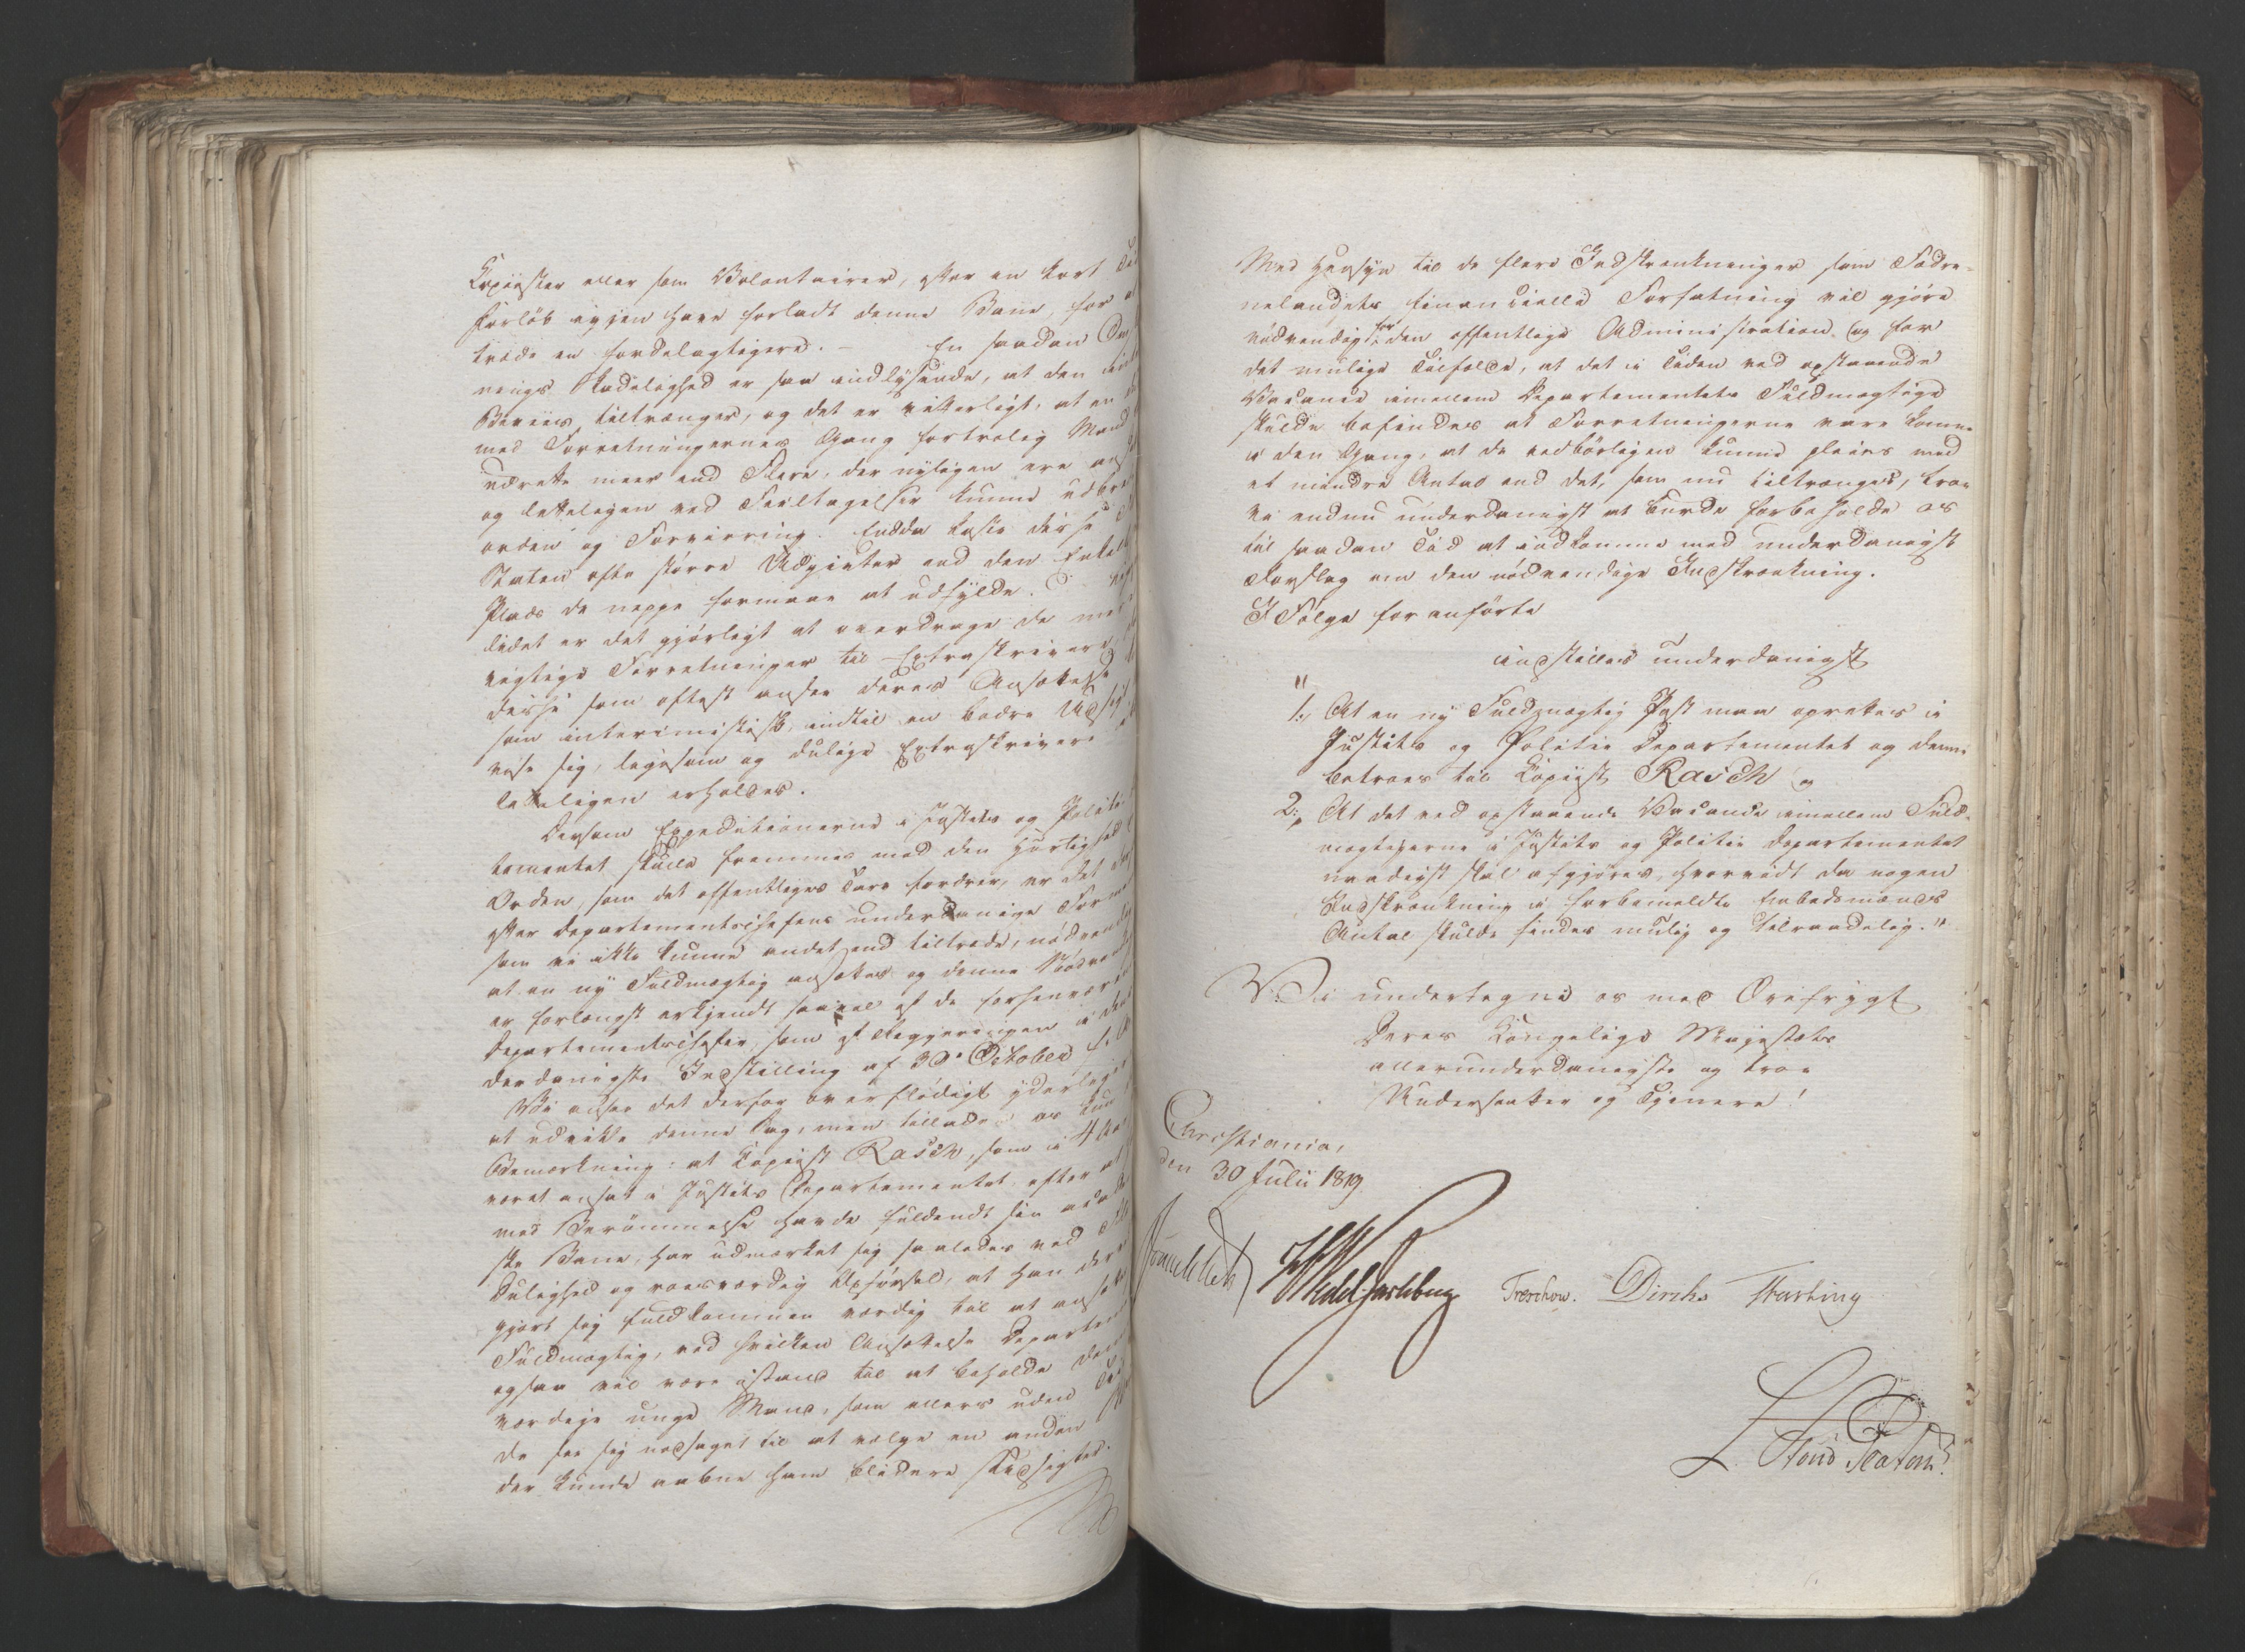 Copiister eller som Volontairer, efter en kort Tids
Forløb igjen have forladt denne Bane, for at
træde en fordelagtigere. – En saadan
nings Skadelighed er saa indlysende, at den
Beviis tiltrænger, og det er vitterligt, at en
med Forretningernes Gang fortrolig Mand
udrette meer end Flere, der nyligen ere
og letteligen ved Feiltagelser kunne
orden og Forvirring. Endda koste disse
Staten ofte større Udgivter end den Enkelte
Plads de neppe formaae at udfylde.
lidet er det gjørligt at overdrage de meer
vigtige Forretninger til Extraskrivere,
disse som oftest ansee deres Ansættelse
som interimistisk, indtil en bedre Udsigt
viise sig, ligesom og duelige Extraskrivere
letteligen erholdes.
Dersom Expeditionerne i Justits og Politie
tementet skulle fremmes med den Hurtighed
Orden, som det offentliges Tarv fordrer, er det
efter Departementschefens underdanige Formening
som vi ikke kunne andet end tiltræde, nødvendigt
at en ny Fuldmægtig ansættes og denne Nødvendighed
er forlængst erkjendt saavel af de forhenværende
Departementschefer, som af Regjeringen i dens
derdanigste Indstilling af 30te October f. A.
Vi ansee det derfor overflødigt yderligere
at udvikle denne Sag, men tillade os kun
Bemærkning: at Copiist Rasch, som i 4 Aar
været ansat i Justits Departementet, efter at
med Berømmelse havde fuldendt sin academi
ske Bane, har udmærket sig saaledes ved
Duelighed og roesværdig Opførsel, at han
gjort sig fuldkommen værdig til at ansættes
Fuldmægtig, ved hvilken Ansættelse Departementet
ogsaa vil være istand til at beholde denne
værdige unge Mand, som ellers uden Tvivl
de see sig nødsaget til at vælge en anden
der kunde aabne ham blidere Udsigter.
Med Hensyn til de flere Indskrænkninger som Fædre-
nelandets finantsielle Forfatning vil gjøre
nødvendig for den offentlige Administration og for
det mulige Tilfælde, at det i Tiden ved opstaaende
Vacance imellem Departementets Fuldmægtige
skulde befindes at Forretningerne vare komne
i den Gang, at de vedbørligen kunne pleies med
et mindre Antal end det, som nu tiltrænges, troe
vi endnu underdanigst at burde forbeholde os
til saadan Tid at indkomme med underdanigst
Forslag om den nødvendige Indskrænkning.
I Følge foranførte
indstilles underdanigst
"
1, At en ny Fuldmægtig Post maa oprettes i
Justits og Politie Departementet og denne
betroes til Copiist Rasch og
2, At det ved opstaaende Vacance imellem Fuld-
mægtigerne i Justits og Politie Departementet
naadigst skal afgjøres, hvorvidt da nogen
Indskrænkning i forbemeldte Embedsmænds
Antal skulde findes mulig og tilraadelig."
Vi undertegne os med Ærefrygt
Deres Kongelige Majestæts
allerunderdanigste og troe
Undersaatter og Tjenere!
Christiania,
den 30 Julii 1819
HWedel Jarlsberg Treschow. Diriks Fasting